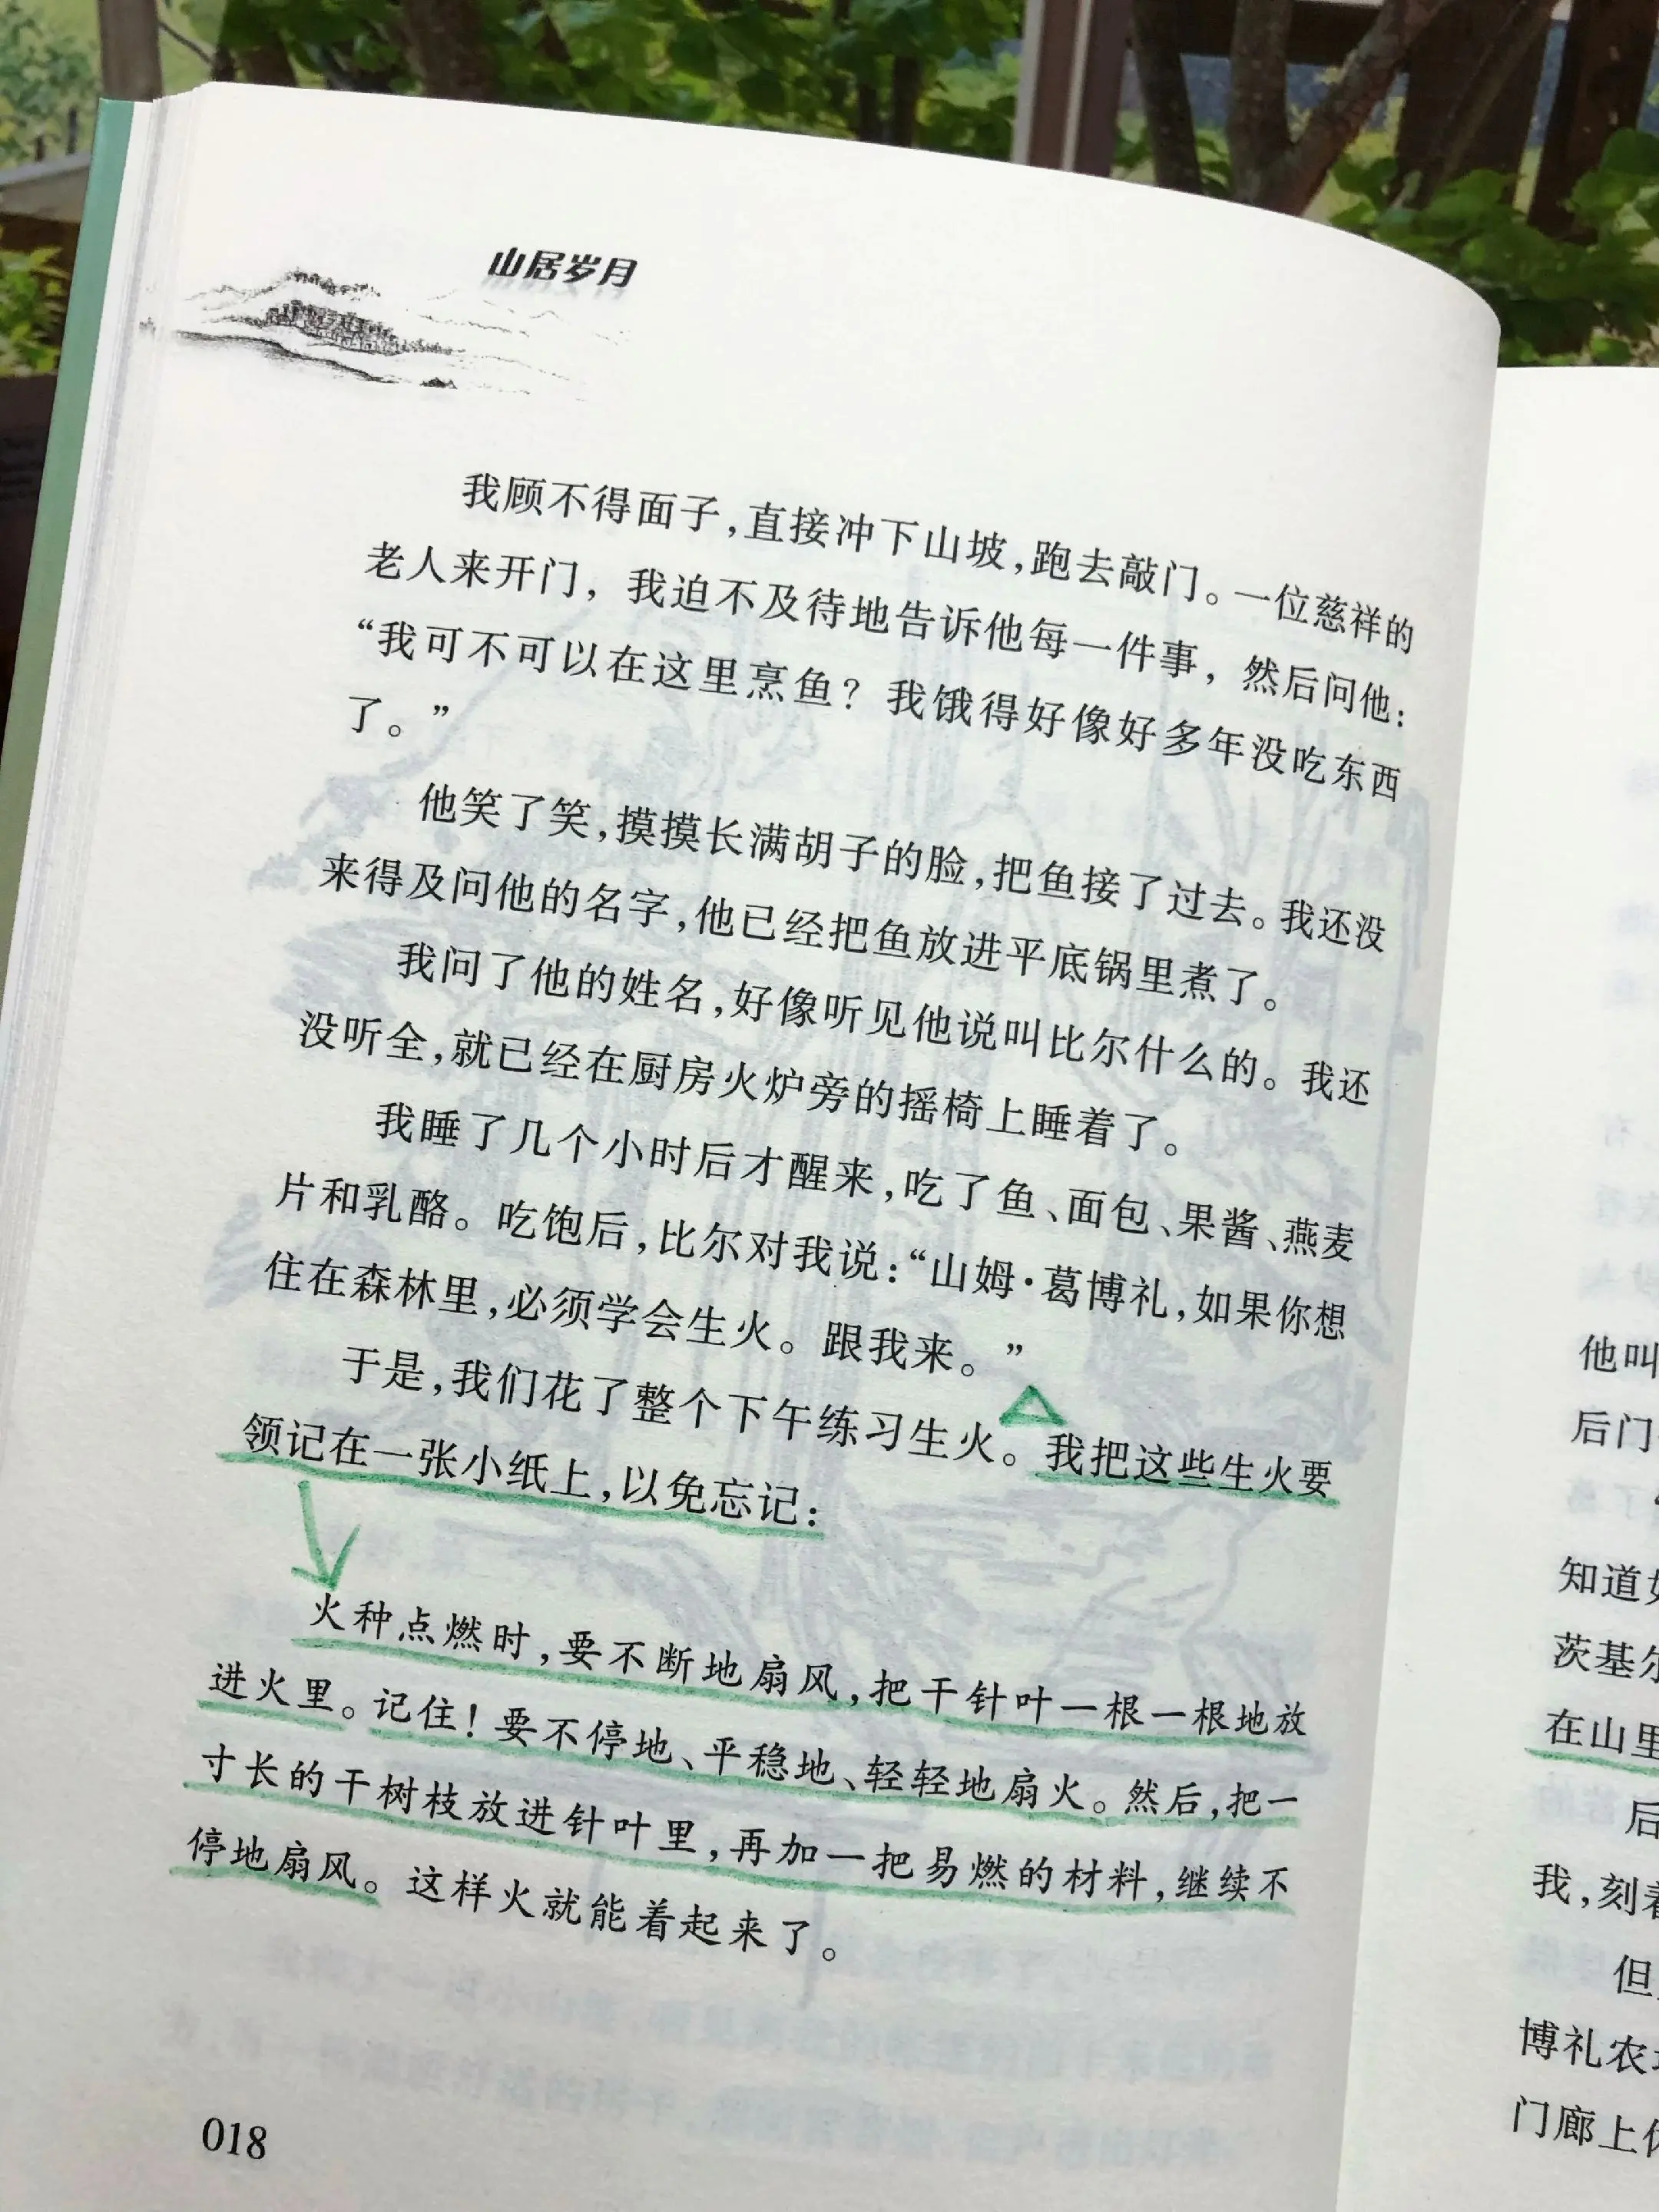 山居岁月
我顾不得面子，直接冲下山坡，跑去敲门。一位慈祥的
老人来开门，我迫不及待地告诉他每一件事，然后问他：
“我可不可以在这里烹鱼？我饿得好像好多年没吃东西
了。”
他笑了笑，摸摸长满胡子的脸，把鱼接了过去。我还没
来得及问他的名字，他已经把鱼放进平底锅里煮了。
我问了他的姓名，好像听见他说叫比尔什么的。我还
没听全，就已经在厨房火炉旁的摇椅上睡着了。
我睡了几个小时后才醒来，吃了鱼、面包、果酱、燕麦
片和乳酪。吃饱后，比尔对我说：“山姆·葛博礼，如果你想
住在森林里，必须学会生火。跟我来。”
于是，我们花了整个下午练习生火。我把这些生火要
领记在一张小纸上，以免忘记：
火种点燃时，要不断地扇风，把干针叶一根一根地放
进火里。记住！要不停地、平稳地、轻轻地扇火。然后，把一
寸长的干树枝放进针叶里，再加一把易燃的材料，继续不
停地扇风。这样火就能着起来了。
018
他叫
后门
知道
茨基尔
在山里
后
我，刻着
但
博礼农
门廊上